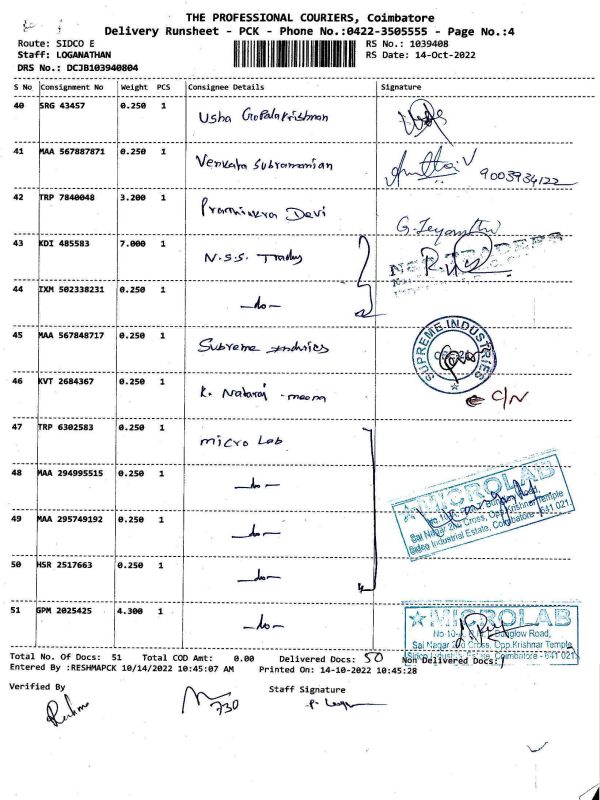 THE PROFESSIONAL COURIERS, Coimbatore
Delivery Runsheet - PCK - Phone No.:0422-3505555 - Page No.:4
Route: SIDCO E
RS No.: 1039408
Staff: LOGANATHAN
RS Date: 14-Oct-2022
DRS No.: DCJB103940804
S No Consignment No Weight PCS Consignee Details Signature
40 SRG 43457 0.250 1 Usha Gopalakrishnan
41 MAA 567887871 0.250 1 Venkata Subramanian 9003934122
42 TRP 7840048 3.200 1 Devi G. Jeyanthi
43 KDI 485583 7.000 1 N.S.S. Trading
44 IXM 502338231 0.250 1 -do-
45 MAA 567848717 0.250 1 Subreme SUPREME INDUSTRIES
46 KVT 2684367 0.250 1 K. Nataraj - meena C/N
47 TRP 6302583 0.250 1 micro Lab
48 MAA 294995515 0.250 1 -do-
MICROLAB
Sai Nagar 2nd Cross, Opp.Krishnar Temple
Sidco Industrial Estate, Coimbatore - 641 021
49 MAA 295749192 0.250 1 -do-
50 HSR 2517663 0.250 1 -do-
51 GPM 2025425 4.300 1 -do-
MICROLAB
Sai Nagar 2nd Cross, Opp.Krishnar Temple
Coimbatore - 641 021
Total No. Of Docs: 51 Total COD Amt: 0.00 Delivered Docs: 50 Non Delivered Docs: 1
Entered By :RESHMAPCK 10/14/2022 10:45:07 AM Printed On: 14-10-2022 10:45:28
Verified By Staff Signature
730